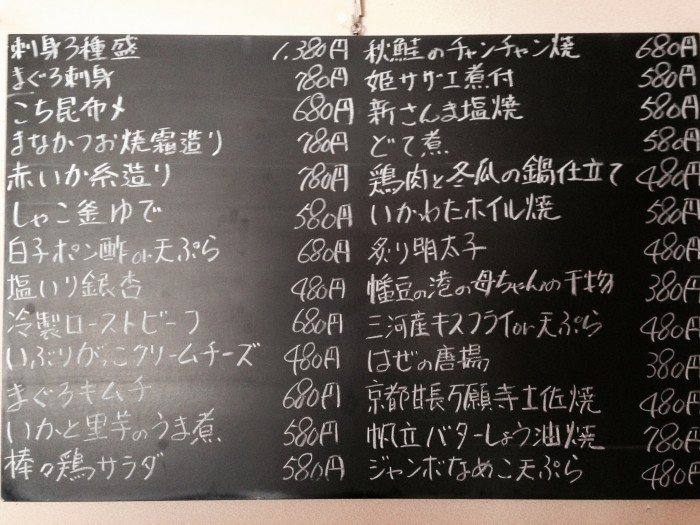 刺身3種盛 1,380円
まぐろ刺身 780円
こち昆布〆 680円
まなかつお焼霜造り 780円
赤いか糸造り 780円
しゃこ釜ゆで 580円
白子ポン酢or天ぷら 680円
塩いり銀杏 480円
冷製ローストビーフ 680円
いぶりがっこクリームチーズ 480円
まぐろキムチ 680円
いかと里芋のうま煮 580円
棒々鶏サラダ 580円
秋鮭のチャンチャン焼 680円
姫サザエ煮付 580円
新さんま塩焼 580円
どて煮 580円
鶏肉と冬瓜の鍋仕立て 480円
いかわたホイル焼 580円
炙り明太子 480円
幡豆の港の母ちゃんの干物 380円
三河産キスフライor天ぷら 480円
はぜの唐揚 380円
京都甘長万願寺土佐焼 480円
帆立バターしょう油焼 780円
ジャンボなめこ天ぷら 480円